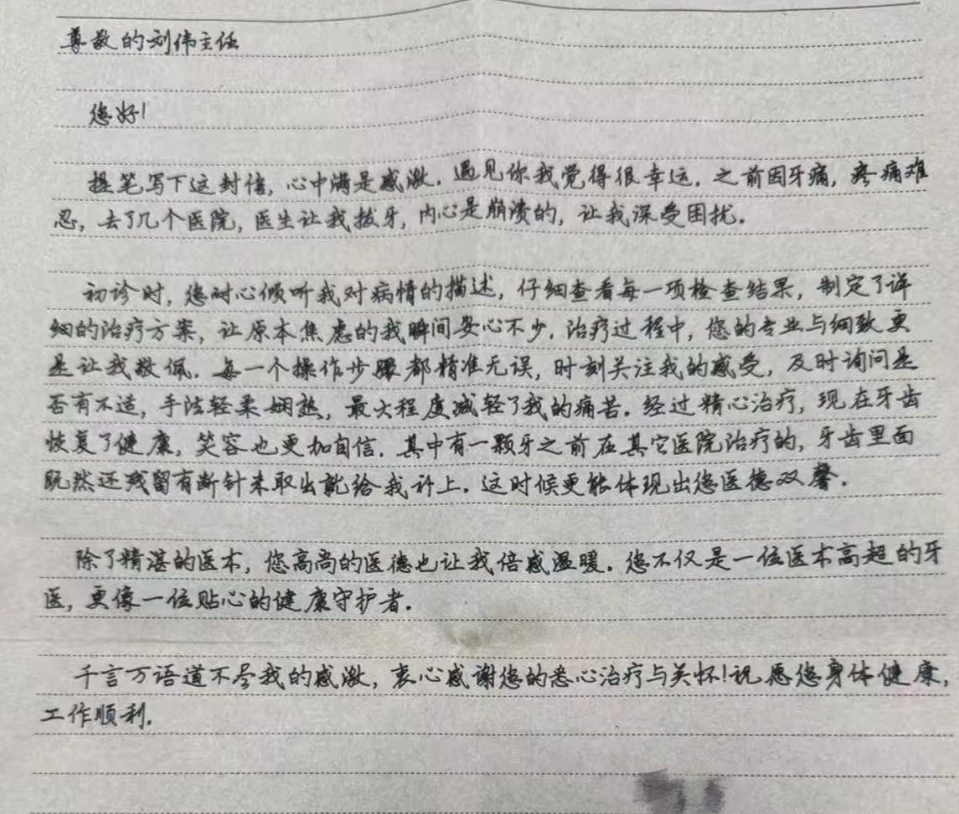 尊敬的刘伟主任
您好!
提笔写下这封信,心中满是感激.遇见你我觉得很幸运.之前因牙痛,疼痛难
忍,去了几个医院,医生让我拔牙,内心是崩溃的,让我深受困扰.
初诊时,您耐心倾听我对病情的描述,仔细查看每一项检查结果,制定了详
细的治疗方案,让原本焦虑的我瞬间安心不少.治疗过程中,您的专业与细致更
是让我敬佩.每一个操作步骤都精准无误,时刻关注我的感受,及时询问是
否有不适,手法轻柔娴熟,最大程度减轻了我的痛苦.经过精心治疗,现在牙齿
恢复了健康,笑容也更加自信.其中有一颗牙之前在其它医院治疗的,牙齿里面
既然还残留有断针未取出就给我补上.这时候更能体现出您医德双馨.
除了精湛的医术,您高尚的医德也让我倍感温暖.您不仅是一位医术高超的牙
医,更像一位贴心的健康守护者.
千言万语道不尽我的感激,衷心感谢您的悉心治疗与关怀!祝愿您身体健康,
工作顺利.